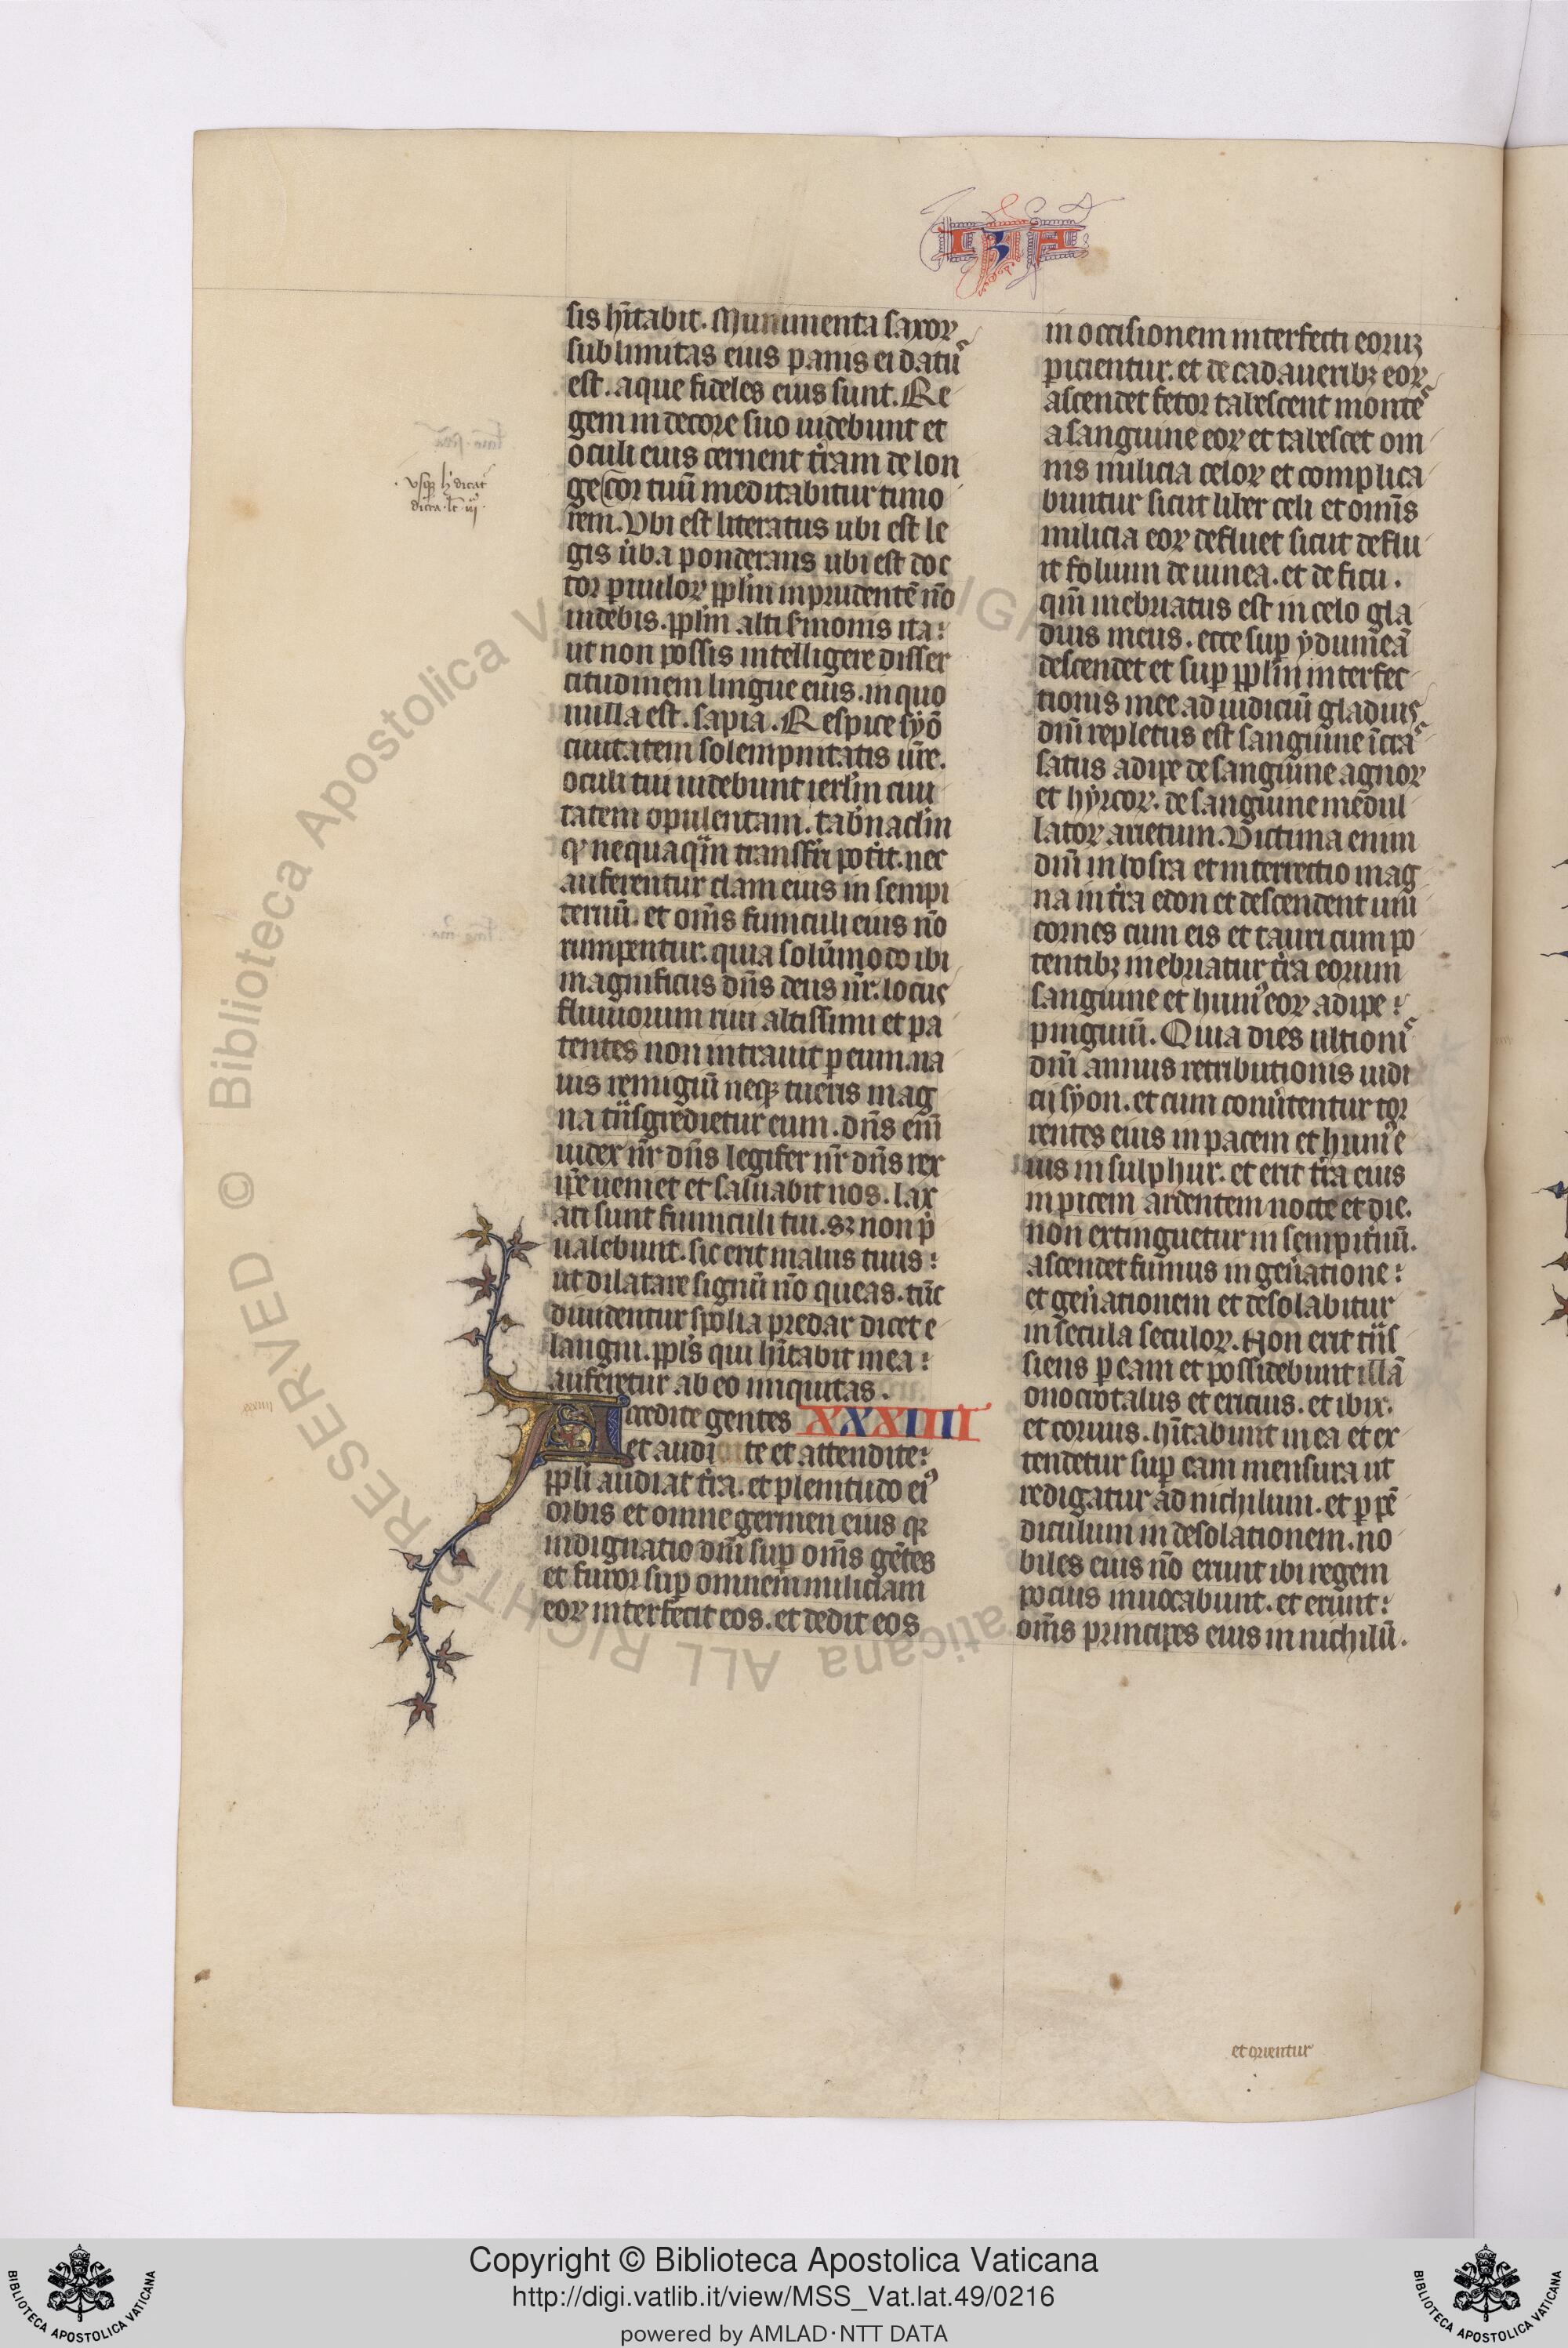 IZA
sis hĩtabit. Munimenta saxoꝝ
sublimitas eius panis ei datũ
est. aque fideles eius sunt. Re
gem in decore suo uidebunt et
oculi eius cernent t̃ram de lon
ge cor tuũ meditabitur timo
rem. Vbi est literatus ubi est le
gis ũba ponderans ubi est doc
tor ꝑuuloꝝ pplm̃ inprudentẽ nõ
uidebis. pplm̃ alti ẜmonis ita:
ut non possis intelligere disser
titudinem lingue eius. in quo
nulla est. sapia. Respice syõ
ciuitatem solempnitatis ũre.
oculi tui uidebunt ierlm̃ ciui
tatem opulentam. tab̃naclm̃
ꝙ nequaꝙm transferri pot̃it. nec
auferentur claui eius in sempi
ternũ. et om̃s funiculi eius nõ
rumpentur. quia solũmodo ibi
magnificus dñs deus nr̃. locus
fluuiorum riui altissimi et pa
tentes non intrauit ꝑ eum. na
uis remigiũ neqꝫ trieris mag
na tñsgredietur eum. dñs eĩm
iudex nr̃ dñs legifer nr̃ dñs rex
ip̃e ueniet et saluabit nos. lax
ati sunt funiculi tui. sꝫ non p̃
ualebunt. sic erit malus tuus:
ut dilatare signũ nõ queas. tũc
diuidentur spolia predaꝝ dicet e
langui. ppl̃s qui hĩtabit in ea:
auferetur ab eo iniquitas.
Accedite gentes XXXIIII
et audite et attendite:
ppl̃i audiat t̃ra. et plenitudo eiꝰ
orbis et omne germen eius qꝛ
indignatio dñi suꝑ om̃s gẽtes
et furor suꝑ omnem miliciam
eoꝝ interfecit eos. et dedit eos
in occisionem interfecti eoruꝫ
ꝓicientur. et de cadaueribꝫ eoꝝ
ascendet fetor tabescent montes
a sanguine eoꝝ et tabescet om
nis milicia celoꝝ et complica
buntur sicut liber celi et om̃is
milicia eoꝝ defluet sicut deflu
it folium de uinea. et de ficu.
qm̃ inebriatus est in celo gla
dius meus. ecce suꝑ ydumeã
descendet et suꝑ pplm̃ interfec
tionis mee ad iudiciũ gladius
dñi repletus est sanguine ĩcras
satus adipe de sanguine agnoꝝ
et hyrcoꝝ. de sanguine medul
latoꝝ arietum. Victima enim
dñi in bosra et interfectio mag
na in t̃ra edon et descendent uni
cornes cum eis et tauri cum po
tentibꝫ inebriatur t̃ra eorum
sanguine et humꝰ eoꝝ adipe:
pinguiũ. Quia dies ultionis
dñi annus retributionis iudi
cij syon. et cum conũtentur tor
rentes eius in pacem et humꝰ e
ius in sulphur. et erit t̃ra eius
in picem ardentem nocte et die.
non extinguetur in sempit̃nũ.
ascendet fumus in geñatione:
et geñationem et desolabitur
in secula seculoꝝ. Non erit tñs
siens ꝑ eam et possidebunt illã
onocrotalus et ericius. et ibix.
et coruus. hĩtabunt in ea et ex
tendetur suꝑ eam mensura ut
redigatur ad nichilum. et ꝑpẽ
diculum in desolationem. no
biles eius nõ erunt ibi regem
pocius inuocabunt. et erunt:
om̃s principes eius in nichilũ.
et orientur
Copyright © Biblioteca Apostolica Vaticana
http://digi.vatlib.it/view/MSS_Vat.lat.49/0216
powered by AMLAD·NTT DATA
BIBLIOTECA APOSTOLICA VATICANA
BIBLIOTECA APOSTOLICA VATICANA